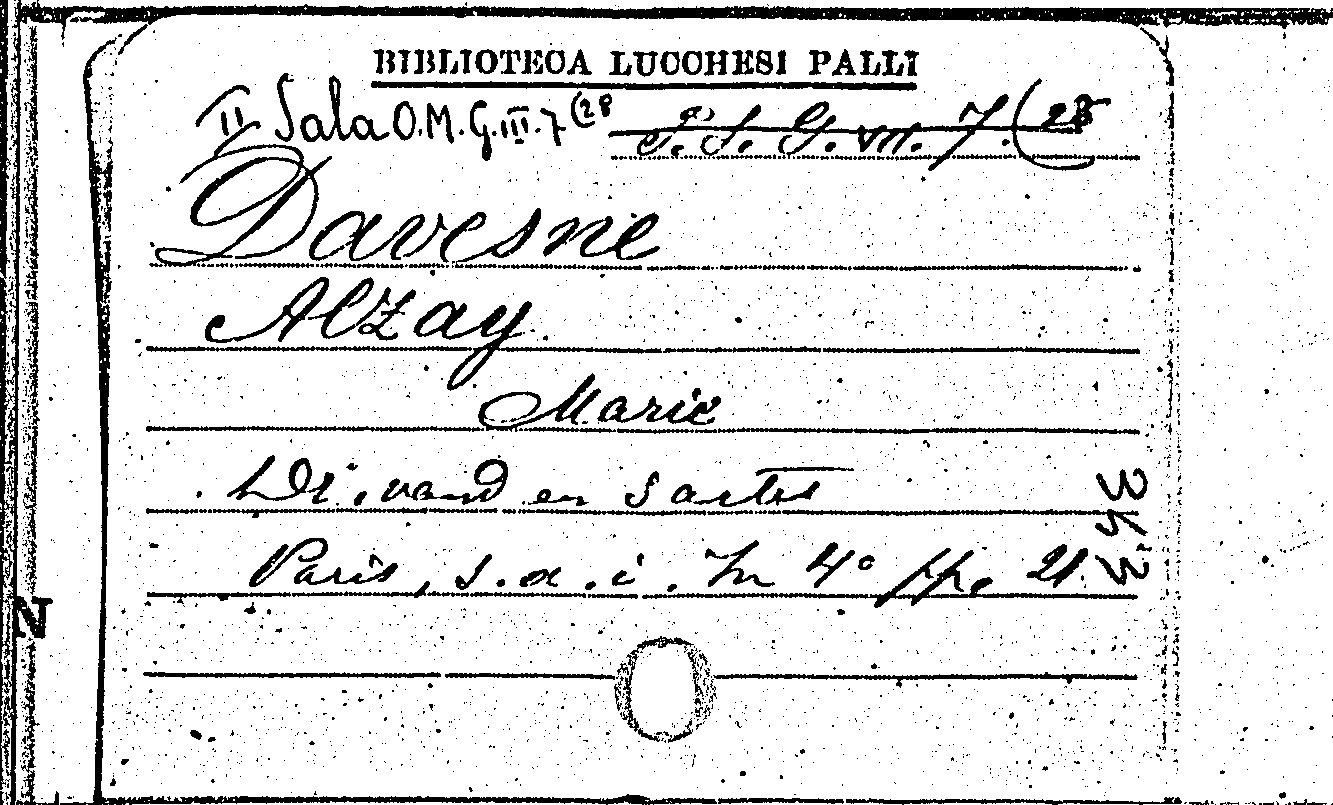 BIBLIOTECA LUCCHESI PALLI
II Sala O.M. G.III.7(28 P. S. G. VII. 7.(28
Davesne
Alzay
Marie
vand en 3 actes
Paris, s.d.i. In 4° pp. 21.
N